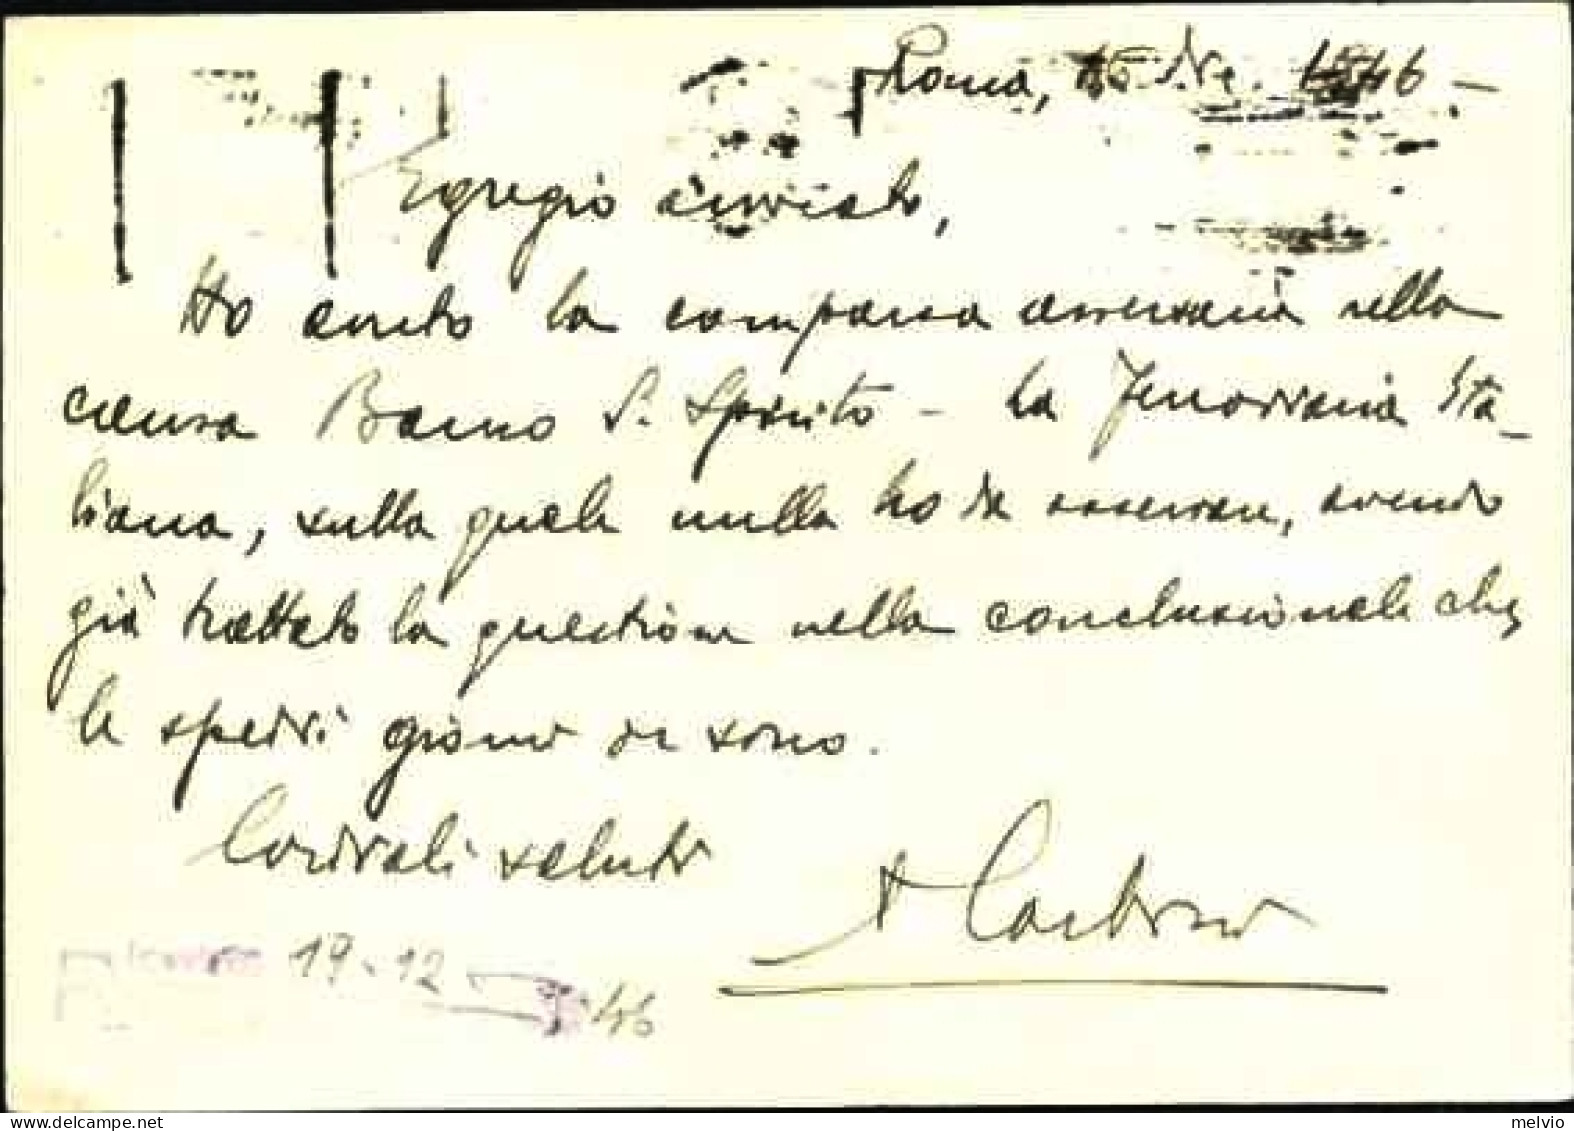 Roma, 15 1946
Egregio amico,
Ho avuto la comparsa avversaria nella
causa Banco S. Spirito - La Ita-
liana, sulla quale nulla ho da osservare, avendo
già trattato la questione nella conclusionale che
le spedii giorni or sono.
Cordiali saluti
19-12
46
melvio